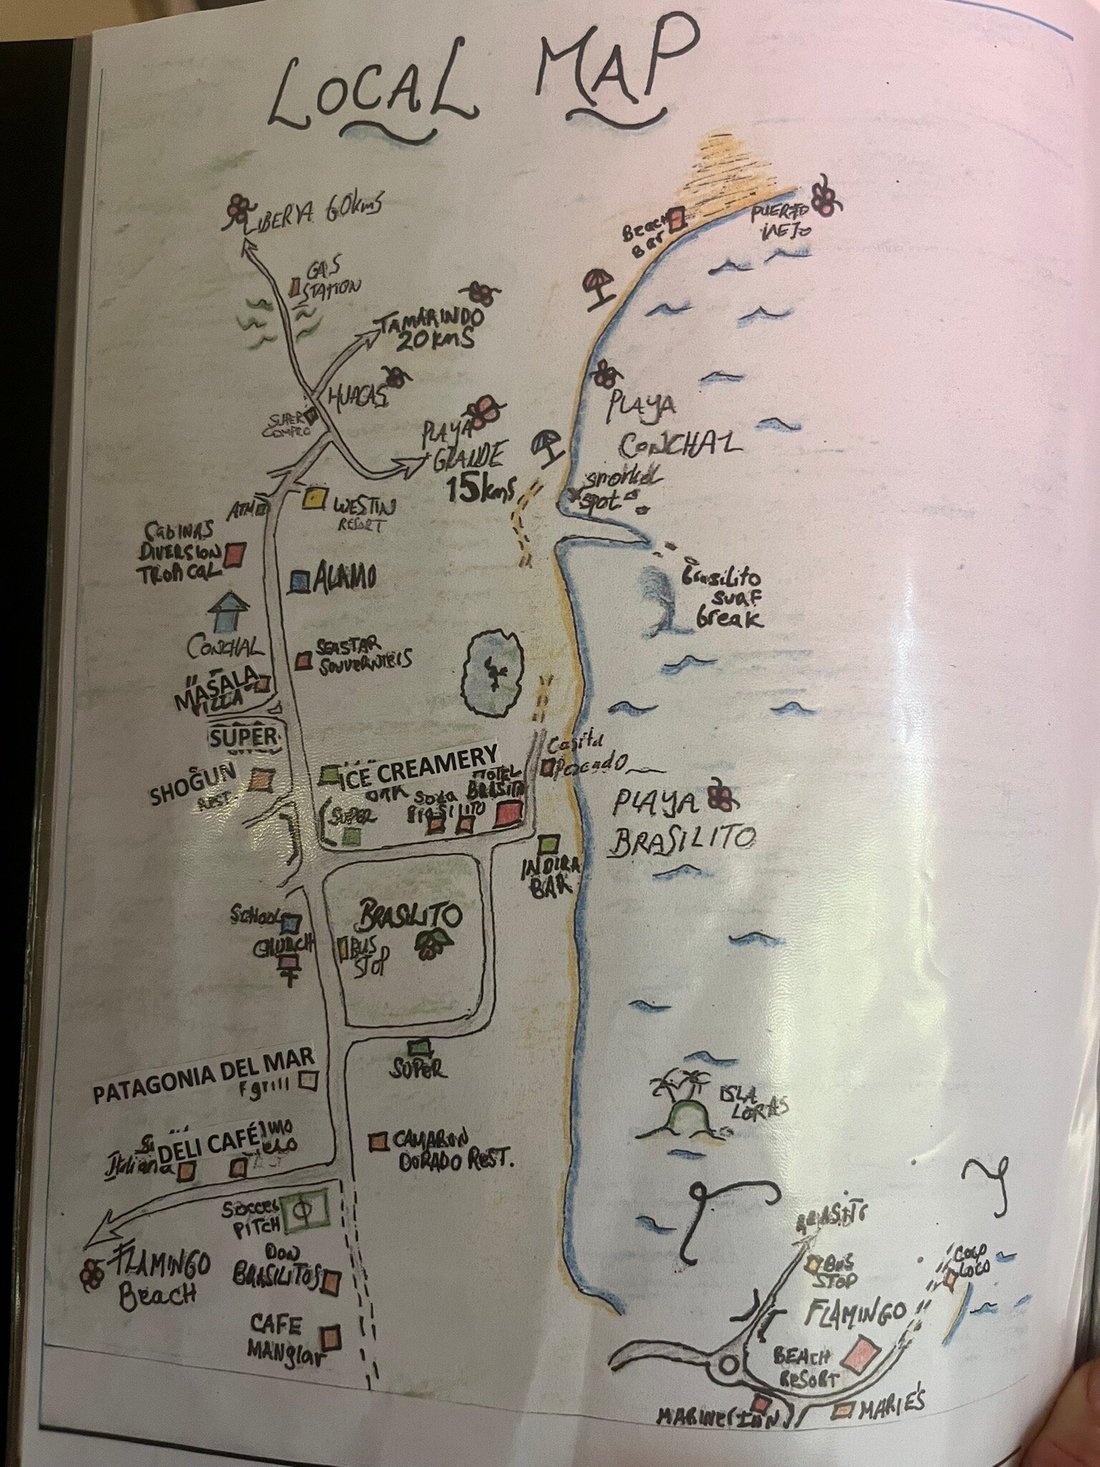 LOCAL MAP
LIBERIA 60kms
GAS
STATION
TAMARINDO
20kms
HUACAS
SUPER
COMPRO
PLAYA
GRANDE
15kms
BEACH
BAR
PUERTO
VIEJO
PLAYA
CONCHAL
snorkel
spot
Brasilito
surf
break
ATM
WESTIN
RESORT
CABINAS
DIVERSION
TROPICAL
ALAMO
CONCHAL
SEASTAR
SOUVERNIEIS
MASALA
VILLA
SUPER
SHOGUN
REST.
ICE CREAMERY
SUPER
SODA
BRASILITO
HOTEL
BRASILITO
Casita
Pescado
INDIRA
BAR
PLAYA
BRASILITO
SCHOOL
CHURCH
BUS
STOP
BRASILITO
PATAGONIA DEL MAR
grill
SUPER
DELI CAFÉ
Italiana
CAMARON
DORADO REST.
ISLA
LORAS
SOCCER
PITCH
FLAMINGO
BEACH
DON
BRASILITOS
CAFE
MANGLAR
BUS
STOP
COCO
LOCO
FLAMINGO
BEACH
RESORT
MARINER INN
MARIE'S